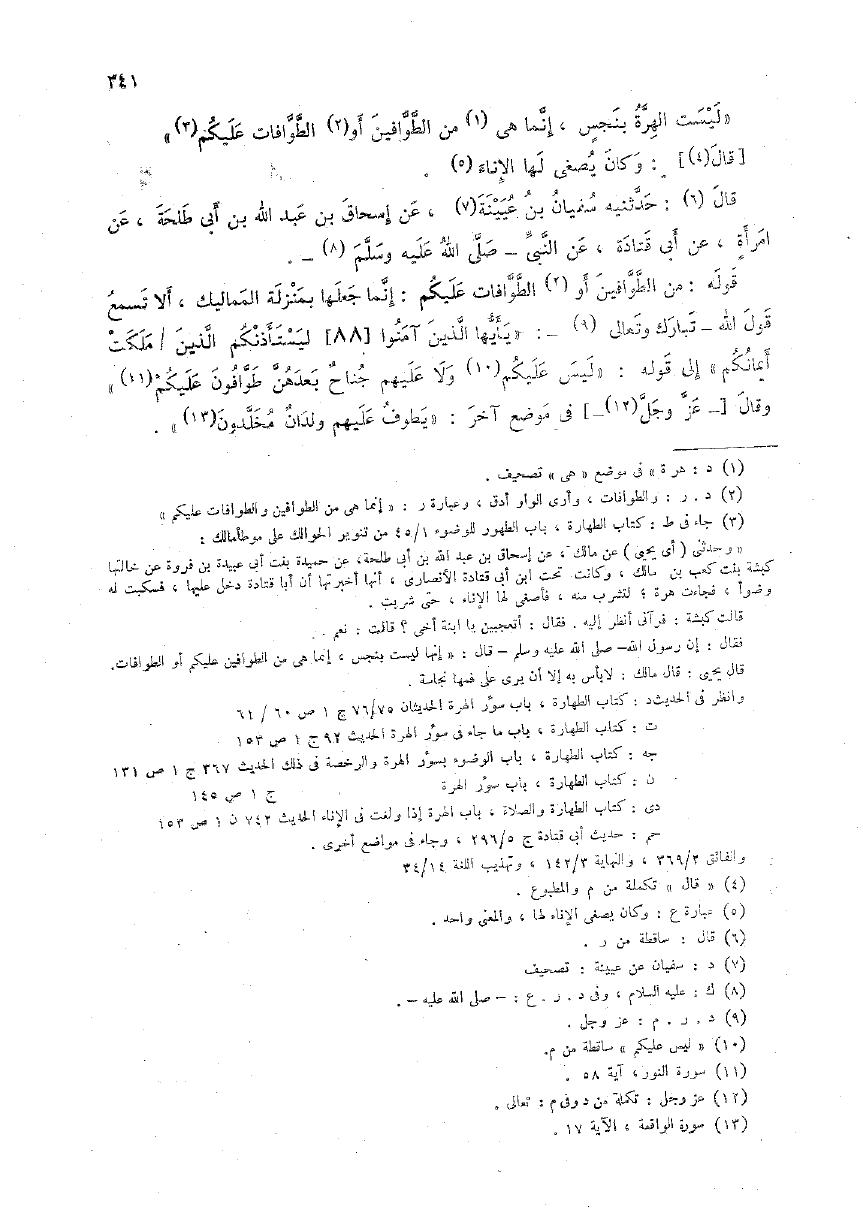 ٣٤١
«لَيْسَت الهِرَّةُ بنَجسٍ ، إنَّما هى (١) من الطَّوَّافينَ أو(٢) الطَّوَّافات عَلَيكُم(٣)»
[قالَ(٤)] : وَكانَ يُصغى لَها الإناءَ (٥) .
قالَ (٦) : حَدَّثنيه سُفيانُ بنُ عُيَيْنَةَ(٧) ، عَن إسحاقَ بن عَبد الله بن أبى طَلحَةَ ، عَن
امرَأةٍ ، عن أبى قَتادَة ، عَن النَّبىِّ – صَلَّى اللهُ عَلَيه وسَلَّمَ (٨) – .
قَولَه : من الطَّوَّافينَ أو (٢) الطَّوَّافات عَلَيكُم : إنَّما جَعَلَها بمَنْزلَة المَماليك ، ألا تَسمعُ
قَولَ الله – تَبارَك وتَعالى (٩) – : «يَأيُّها الَّذينَ آمَنُوا [٨٨] ليَسْتَأذنْكُم الَّذينَ / مَلَكَتْ
أيمانُكُم» إلى قَوله : «لَيسَ عَلَيكُم(١٠) وَلَا عَلَيهم جُناحٌ بَعدَهُنَّ طَوَّافُونَ عَلَيكُمْ(١١)»
وقالَ [– عَزَّ وجَلَّ(١٢)–] فى مَوضع آخرَ : «يَطوفُ عَلَيهم ولدَانٌ مُخَلَّدونَ(١٣)» .
(١) د : هرة » فى موضع « هى » تصحيف .
(٢) د . ر : والطوافات ، وأرى الواو أدق ، وعبارة ر : « إنما هى من الطوافين والطوافات عليكم »
(٣) جاء فى ط : كتاب الطهارة ، باب الطهور للوضوء ٤٥/١ من تنوير الحوالك على موطأمالك :
« وحدثنى ( أى يحيى ) عن مالك ، عن إسحاق بن عبد الله بن أبى طلحة، عن حميدة بنت أبى عبيدة بن فروة عن خالتها
كبشة بنت كعب بن مالك ، وكانت تحت ابن أبى قتادة الأنصارى ، أنها أخبرتها أن أبا قتادة دخل عليها ، فسكبت له
وضوأ ، فجاءت هرة ؛ لتشرب منه ، فأصغى لها الإناء ، حتى شربت .
قالت كبشة : فرآنى أنظر إليه . فقال : أتعجبين يا ابنة أخى ؟ قالت : نعم .
فقال : إن رسول الله– صلى الله عليه وسلم – قال : « إنها ليست بنجس ، إنما هى من الطوافين عليكم أو الطوافات.
قال يحيى : قال مالك : لابأس به إلا أن يرى على فمها نجاسة .
وانظر فى الحديث د : كتاب الطهارة ، باب سؤر الهرة الحديثان ٧٦/٧٥ ج ١ ص ٦٠ / ٦١
ت : كتاب الطهارة ، باب ما جاء فى سؤر الهرة الحديث ٩٢ ج ١ ص ١٥٣
جه : كتاب الطهارة ، باب الوضوء بسؤر الهرة والرخصة فى ذلك الحديث ٣٦٧ ج ١ ص ١٣١
ن : كتاب الطهارة ، باب سؤر الهرة ج ١ ص ١٤٥
دى : كتاب الطهارة والصلاة ، باب الهرة إذا ولغت فى الإناء الحديث ٧٤٢ ن ١ ص ١٥٣
حم : حديث أبى قتادة ج ٢٩٦/٥ ، وجاء فى مواضع أخرى .
والفائق ٣٦٩/٢ ، والنهاية ١٤٢/٣ ، وتهذيب اللغة ٣٤/١٤
(٤) « قال » تكملة من م والمطبوع .
(٥) عبارة ع : وكان يصغى الإناء لها ، والمعنى واحد .
(٦) قال : ساقطة من ر .
(٧) د : سفيان عن عيينة : تصحيف
(٨) ك : عليه السلام ، وفى د . ر . ع : – صلى الله عليه – .
(٩) د . ر . م : عز وجل .
(١٠) « ليس عليكم » ساقطة من م.
(١١) سورة النور، آية ٥٨ .
(١٢) عز وجل : تكملة من د وفى م : تعالى .
(١٣) سورة الواقعة ، الآية ١٧ .